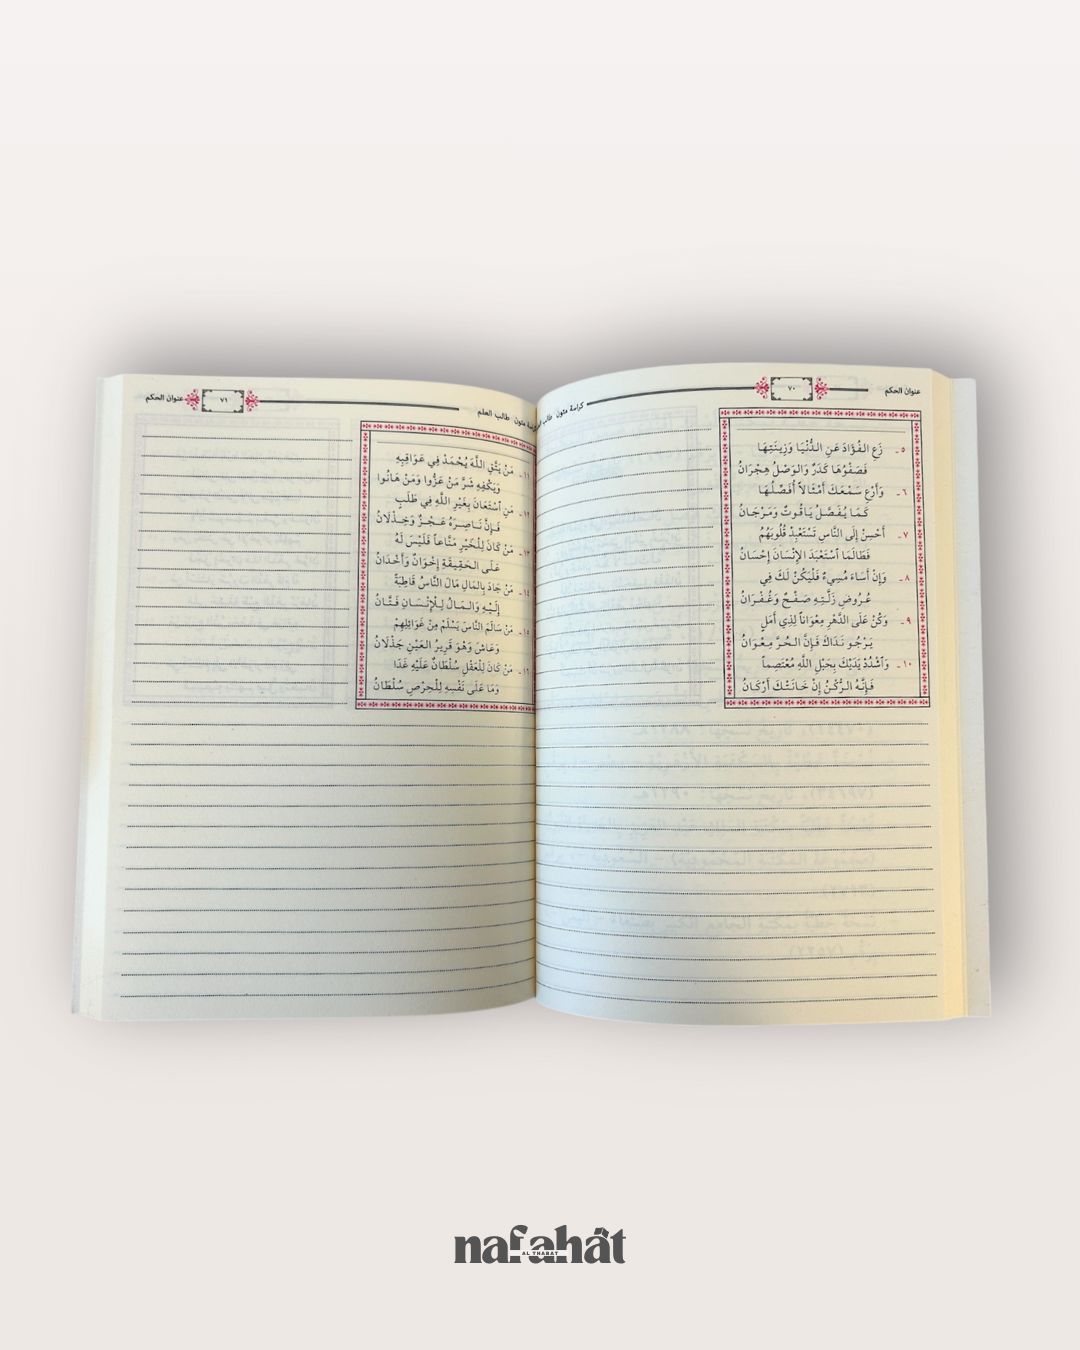 عنوان الحكم
٧٠
كراسة متون طالب
٥ - زَعِ الفُؤَادَ عَنِ الدُّنْيَا وَزِينَتِهَا
فَصَفْوُهَا كَدَرٌ وَالوَصْلُ هِجْرَانُ
٦ - وَأَرْعِ سَمْعَكَ أَمْثَالاً أُفَصِّلُهَا
كَمَا يُفَصَّلُ يَاقُوتٌ وَمَرْجَانُ
٧ - أَحْسِنْ إِلَى النَّاسِ تَسْتَعْبِدْ قُلُوبَهُمُ
فَطَالَمَا ٱسْتَعْبَدَ الإِنْسَانَ إِحْسَانُ
٨ - وَإِنْ أَسَاءَ مُسِيءٌ فَلْيَكُنْ لَكَ فِي
عُرُوضِ زَلَّتِهِ صَفْحٌ وَغُفْرَانُ
٩ - وَكُنْ عَلَى الدَّهْرِ مِعْوَاناً لِذِي أَمَلٍ
يَرْجُو نَدَاكَ فَإِنَّ الحُرَّ مِعْوَانُ
١٠ - وَٱشْدُدْ يَدَيْكَ بِحَبْلِ اللَّهِ مُعْتَصِماً
فَإِنَّهُ الرُّكْنُ إِنْ خَانَتْكَ أَرْكَانُ
متون طالب العلم
٧١
عنوان الحكم
١١ - مَنْ يَتَّقِ اللَّهَ يُحْمَدْ فِي عَوَاقِبِهِ
وَيَكْفِهِ شَرَّ مَنْ عَزُّوا وَمَنْ هَانُوا
١٢ - مَنِ ٱسْتَعَانَ بِغَيْرِ اللَّهِ فِي طَلَبٍ
فَإِنَّ نَاصِرَهُ عَجْزٌ وَخِذْلَانُ
١٣ - مَنْ كَانَ لِلْخَيْرِ مَنَّاعاً فَلَيْسَ لَهُ
عَلَى الحَقِيقَةِ إِخْوَانٌ وَأَخْدَانُ
١٤ - مَنْ جَادَ بِالمَالِ مَالَ النَّاسُ قَاطِبَةً
إِلَيْهِ وَالمَالُ لِلْإِنْسَانِ فَتَّانُ
١٥ - مَنْ سَالَمَ النَّاسَ يَسْلَمْ مِنْ غَوَائِلِهِمْ
وَعَاشَ وَهْوَ قَرِيرُ العَيْنِ جَذْلَانُ
١٦ - مَنْ كَانَ لِلْعَقْلِ سُلْطَانٌ عَلَيْهِ غَدَا
وَمَا عَلَى نَفْسِهِ لِلْحِرْصِ سُلْطَانُ
nafahât
AL THABAT